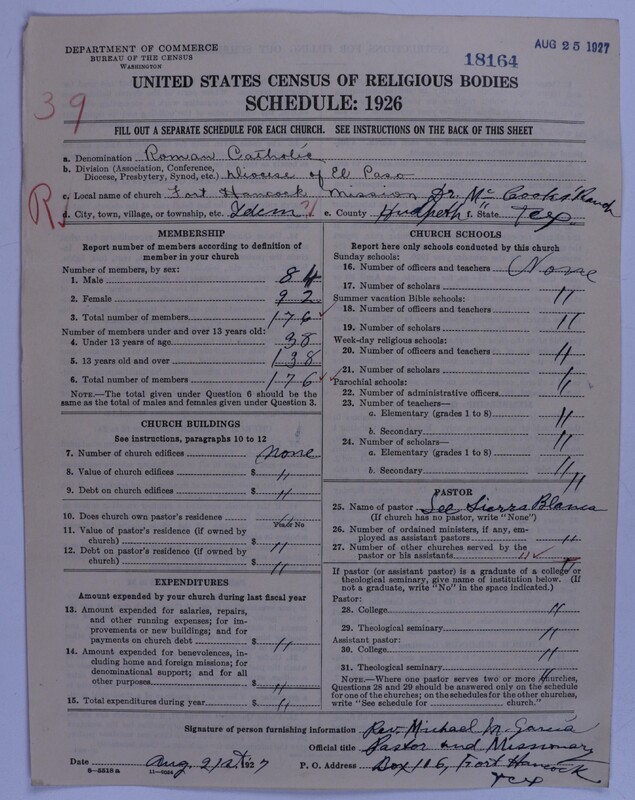 DEPARTMENT OF COMMERCE
BUREAU OF THE CENSUS
WASHINGTON
18164
AUG 25 1927
UNITED STATES CENSUS OF RELIGIOUS BODIES
SCHEDULE: 1926
39
FILL OUT A SEPARATE SCHEDULE FOR EACH CHURCH. SEE INSTRUCTIONS ON THE BACK OF THIS SHEET
a. Denomination Roman Catholic
b. Division (Association, Conference,
Diocese, Presbytery, Synod, etc.) Diocese of El Paso
c. Local name of church Fort Hancock Mission Dr. Mc Cooks' Ranch
R
d. City, town, village, or township, etc. Idem e. County Hudpeth f. State Tex.
MEMBERSHIP
Report number of members according to definition of
member in your church
Number of members, by sex:
1. Male 84
2. Female 92
3. Total number of members 176
Number of members under and over 13 years old:
4. Under 13 years of age 38
5. 13 years old and over 138
6. Total number of members 176
NOTE.—The total given under Question 6 should be
same as the total of males and females given under Question 3.
CHURCH BUILDINGS
See instructions, paragraphs 10 to 12
7. Number of church edifices none
8. Value of church edifices $ "
9. Debt on church edifices $ "
10. Does church own pastor's residence "
Yes or No
11. Value of pastor's residence (if owned by
church) $ "
12. Debt on pastor's residence (if owned by
church) $ "
EXPENDITURES
Amount expended by your church during last fiscal year
13. Amount expended for salaries, repairs,
and other running expenses; for im-
provements or new buildings; and for
payments on church debt $ "
14. Amount expended for benevolences, in-
cluding home and foreign missions; for
denominational support; and for all
other purposes $ "
15. Total expenditures during year $ "
CHURCH SCHOOLS
Report here only schools conducted by this church
Sunday schools:
16. Number of officers and teachers None
17. Number of scholars "
Summer vacation Bible schools:
18. Number of officers and teachers
19. Number of scholars "
Week-day religious schools:
20. Number of officers and teachers "
21. Number of scholars "
Parochial schools:
22. Number of administrative officers "
23. Number of teachers—
a. Elementary (grades 1 to 8) "
b. Secondary "
24. Number of scholars—
a. Elementary (grades 1 to 8) "
b. Secondary "
PASTOR
25. Name of pastor See Sierra Blanca
(If church has no pastor, write "None")
26. Number of ordained ministers, if any, em-
ployed as assistant pastors "
27. Number of other churches served by the
pastor or his assistants "
If pastor (or assistant pastor) is a graduate of a college or
theological seminary, give name of institution below. (If
not a graduate, write "No" in the space indicated.)
Pastor:
28. College "
29. Theological seminary "
Assistant pastor:
30. College "
31. Theological seminary "
NOTE.—Where one pastor serves two or more churches,
Questions 28 and 29 should be answered only on the schedule
for one of the churches; on the schedules for the other churches,
write "See schedule for church."
Signature of person furnishing information Rev. Michael M. Garcia
Official title Pastor and Missionary
Date Aug 21st 1927 P. O. Address Box 116, Fort Hancock
Tex
8—5518a 11—9054